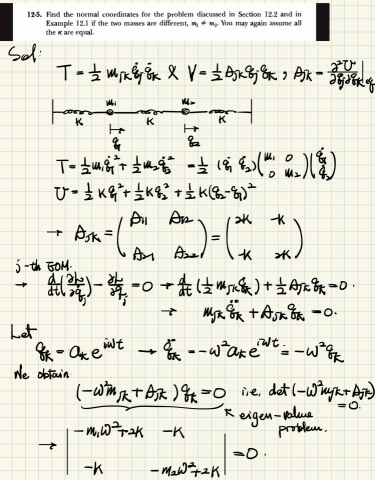 12-5. Find the normal coordinates for the problem discussed in Section 12.2 and in
Example 12.1 if the two masses are different, m₁ ≠ m₂. You may again assume all
the κ are equal.
Sol:
T = ½ m_jk q̇_j q̇_k & V = ½ A_jk q_j q_k , A_jk = ∂²U/∂q_j∂q_k |eq
m₁ m₂
K K K
q₁ q₂
T = ½ m₁q̇₁² + ½ m₂q̇₂² = ½ (q̇₁ q̇₂) (m₁ 0 / 0 m₂) (q̇₁ / q̇₂)
U = ½ K q₁² + ½ K q₂² + ½ K (q₂-q₁)²
→ A_jk = (A₁₁ A₁₂ / A₂₁ A₂₂) = (2K -K / -K 2K)
j-th EOM.
→ d/dt (∂L/∂q̇_j) - ∂L/∂q_j = 0 → d/dt (½ m_jk q̇_k) + ½ A_jk q_k = 0.
→ m_jk q̈_k + A_jk q_k = 0.
Let
q_k = a_k e^{iωt} → q̈_k = -ω² a_k e^{iωt} = -ω² q_k
We obtain
(-ω² m_jk + A_jk) q_k = 0 i.e, det (-ω² m_jk + A_jk) = 0.
eigen-value
problem.
→ | -m₁ω²+2K -K |
| -K -m₂ω²+2K | = 0.